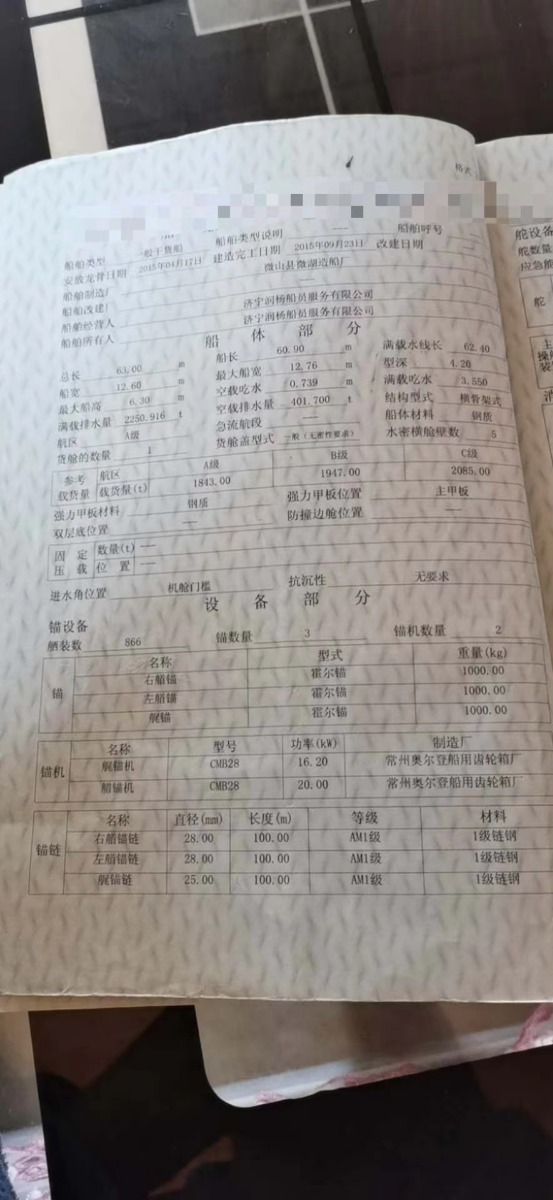 格式
船舶类型 一般干货船 船舶类型说明 —— 船舶呼号
安放龙骨日期 2015年04月17日 建造完工日期 2015年09月23日 改建日期 ——
船舶制造厂 微山县微湖造船厂
船舶改建厂 ——
船舶经营人 济宁润杨船员服务有限公司
船舶所有人 济宁润杨船员服务有限公司
船 体 部 分
总长 63.00 m 船长 60.90 m 满载水线长 62.40
船宽 12.60 m 最大船宽 12.76 m 型深 4.20
最大船高 6.30 m 空载吃水 0.739 m 满载吃水 3.550
满载排水量 2250.916 t 空载排水量 401.700 t 结构型式 横骨架式
航区 A级 急流航段 —— 船体材料 钢质
货舱的数量 1 货舱盖型式 一般(无密性要求) 水密横舱壁数 5
参考载货量 航区 A级 B级 C级
载货量(t) 1843.00 1947.00 2085.00
强力甲板材料 钢质 强力甲板位置 主甲板
双层底位置 —— 防撞边舱位置 ——
固定压载 数量(t) ——
位置 ——
进水角位置 机舱门槛 抗沉性 无要求
设 备 部 分
锚设备
舾装数 866 锚数量 3 锚机数量 2
锚 名称 型式 重量(kg)
右艏锚 霍尔锚 1000.00
左艏锚 霍尔锚 1000.00
艉锚 霍尔锚 1000.00
锚机 名称 型号 功率(kW) 制造厂
艉锚机 CMB28 16.20 常州奥尔登船用齿轮箱厂
艏锚机 CMB28 20.00 常州奥尔登船用齿轮箱厂
锚链 名称 直径(mm) 长度(m) 等级 材料
右艏锚链 28.00 100.00 AM1级 1级链钢
左艏锚链 28.00 100.00 AM1级 1级链钢
艉锚链 25.00 100.00 AM1级 1级链钢
舵设备
舵数量
应急舵
舵